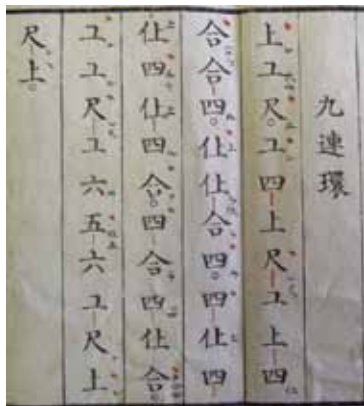 九連環
上工尺工四上尺工上四
合合四仩仩合四四仩四
仩四仩四合四合四仩合
工工尺工六五六工尺上
尺上